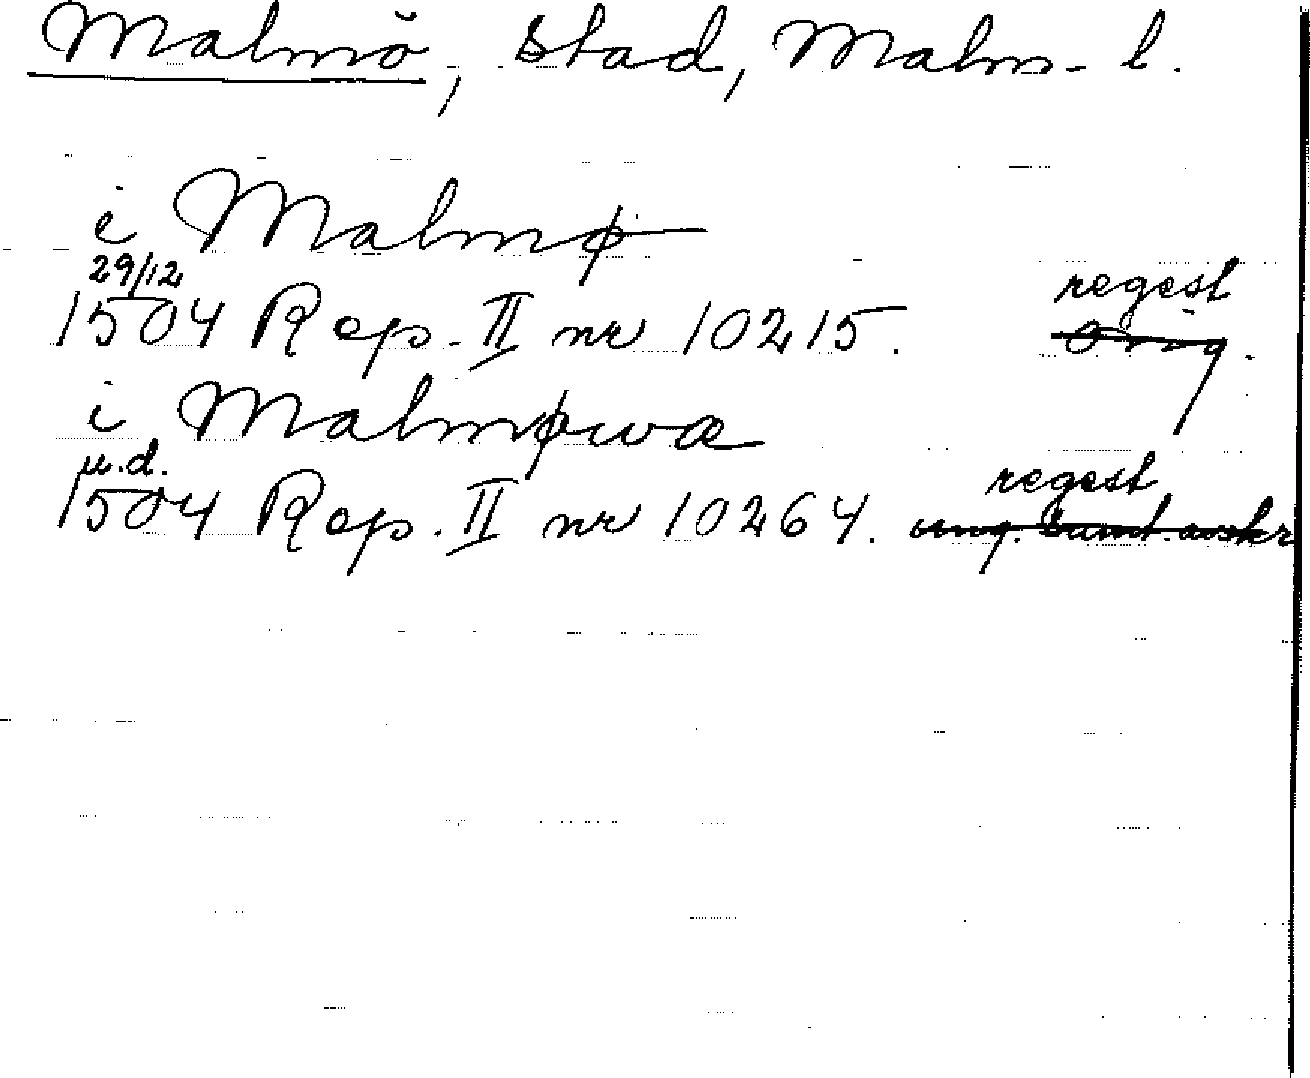 Malmö, stad, Malm. l.
i Malmø
29/12
1504 Rep. II nr 10215. regest
Orig.
i Malmøwæ
u.d.
1504 Rep. II nr 10264. regest
ung. samt. avskr